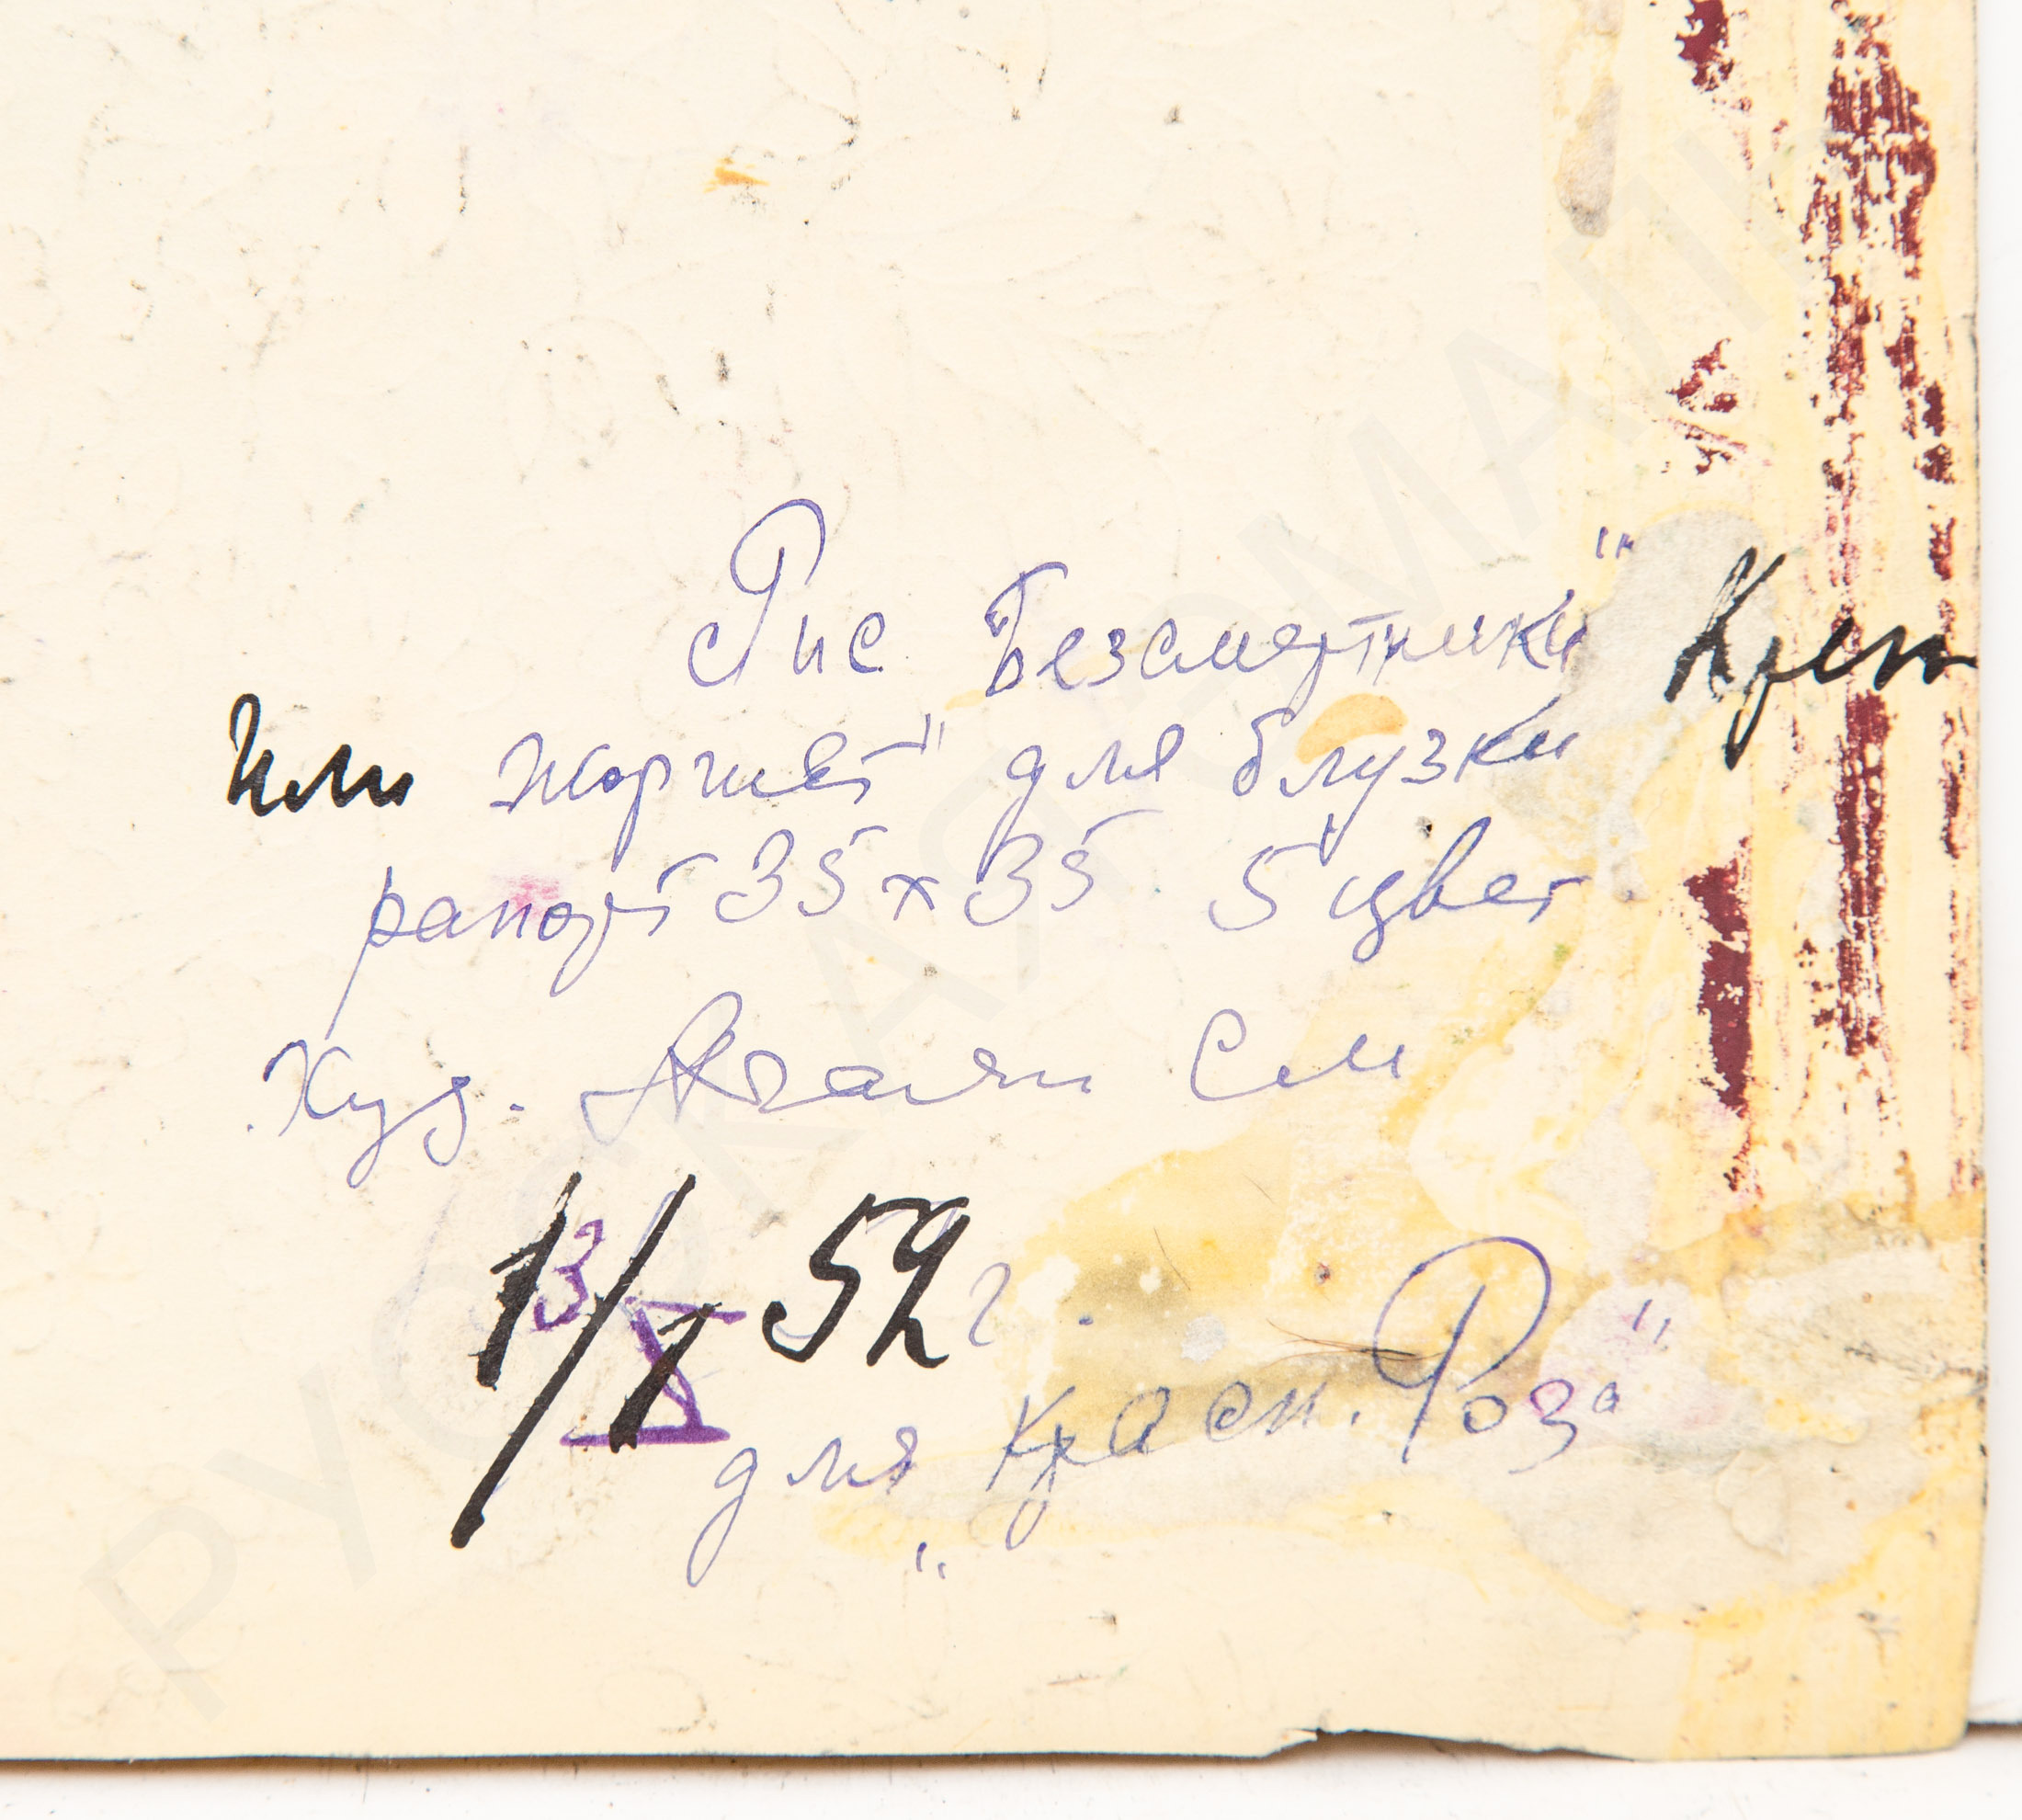 Рис "Безсмертники" Креп
или жоржет" для блузки
рапорт 35 х 35 5 цвет
Худ. Агаян См
1/I 52 г.
для "Красн. Роза"
РУССКАЯ ЭМАЛЬ